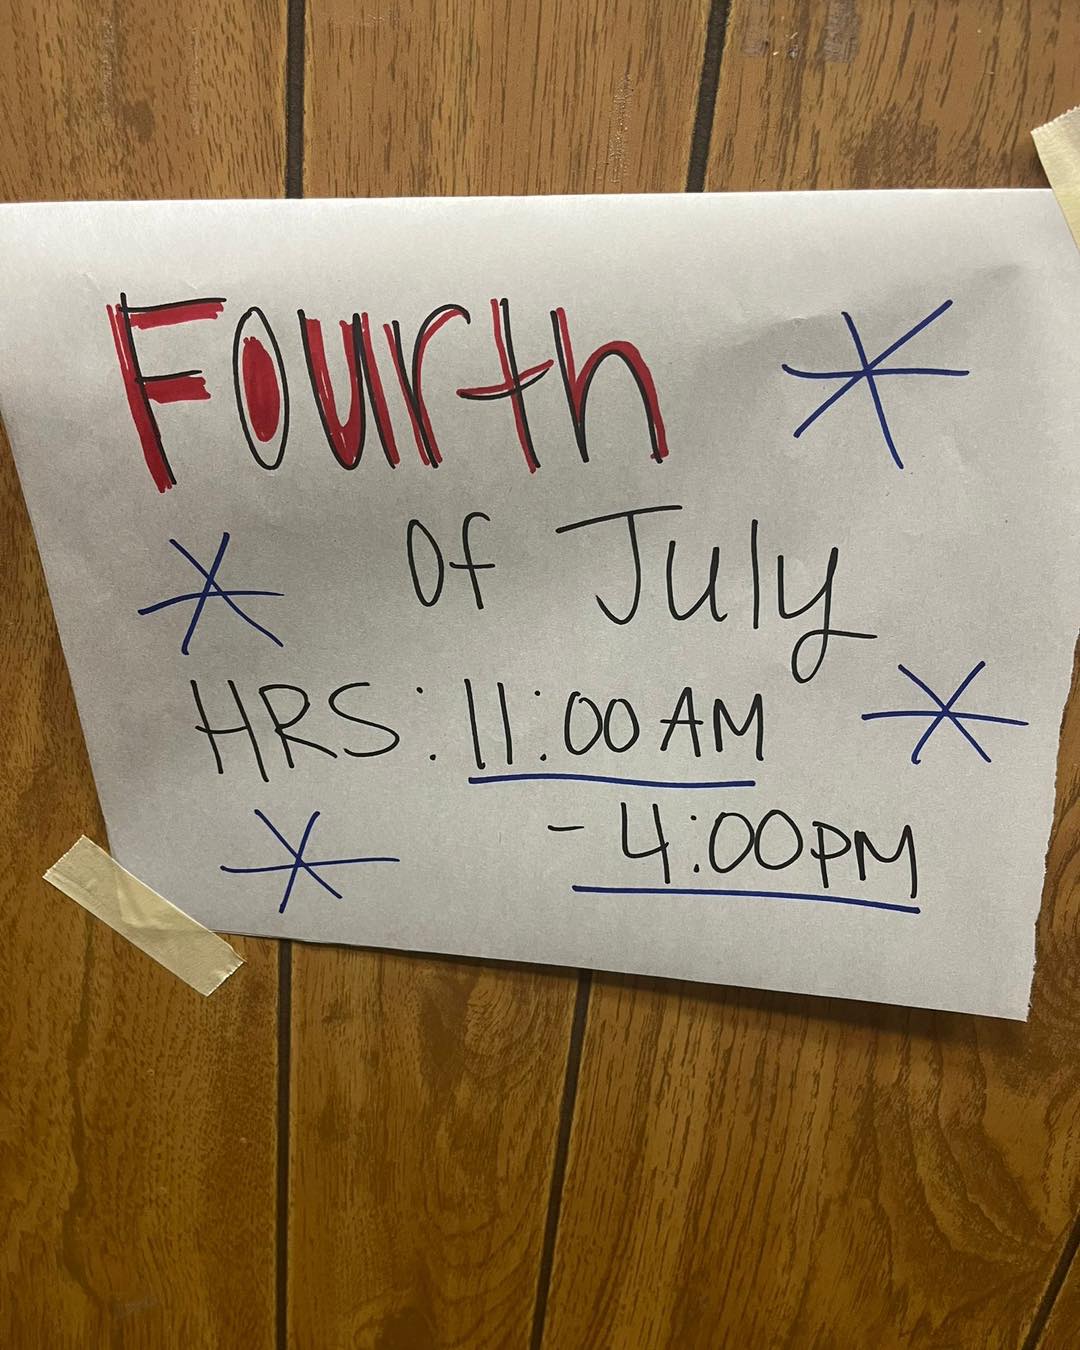 Fourth
Of July
HRS: 11:00 AM
- 4:00PM